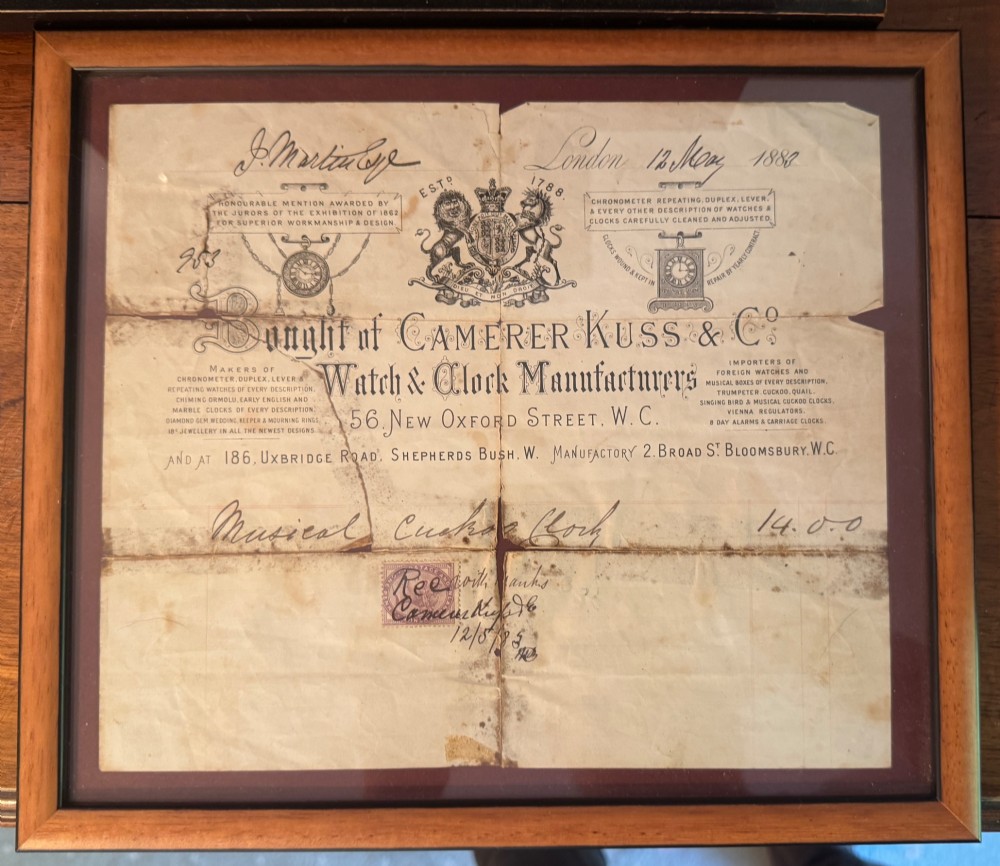 J. Martin Esq
London, 12 May 1883
ESTD 1788.
HONOURABLE MENTION AWARDED BY
THE JURORS OF THE EXHIBITION OF 1862
FOR SUPERIOR WORKMANSHIP & DESIGN
CHRONOMETER REPEATING, DUPLEX, LEVER,
& EVERY OTHER DESCRIPTION OF WATCHES &
CLOCKS CAREFULLY CLEANED AND ADJUSTED
CLOCKS WOUND & KEPT IN REPAIR BY YEARLY CONTRACT
DIEU ET MON DROIT
983
Bought of CAMERER KUSS & Co
Watch & Clock Manufacturers
56, NEW OXFORD STREET, W.C.
MAKERS OF
CHRONOMETER, DUPLEX, LEVER &
REPEATING WATCHES OF EVERY DESCRIPTION,
CHIMING ORMOLU, EARLY ENGLISH AND
MARBLE CLOCKS OF EVERY DESCRIPTION,
DIAMOND GEM WEDDING, KEEPER & MOURNING RINGS,
18CT JEWELLERY IN ALL THE NEWEST DESIGNS.
IMPORTERS OF
FOREIGN WATCHES AND
MUSICAL BOXES OF EVERY DESCRIPTION,
TRUMPETER, CUCKOO, QUAIL,
SINGING BIRD & MUSICAL CUCKOO CLOCKS,
VIENNA REGULATORS,
8 DAY ALARMS & CARRIAGE CLOCKS.
AND AT 186, UXBRIDGE ROAD, SHEPHERDS BUSH, W. MANUFACTORY 2, BROAD ST BLOOMSBURY, W.C.
Musical Cuckoo Clock 14.0.0
Rec with thanks
Camerer Kuss & Co
12/5/83